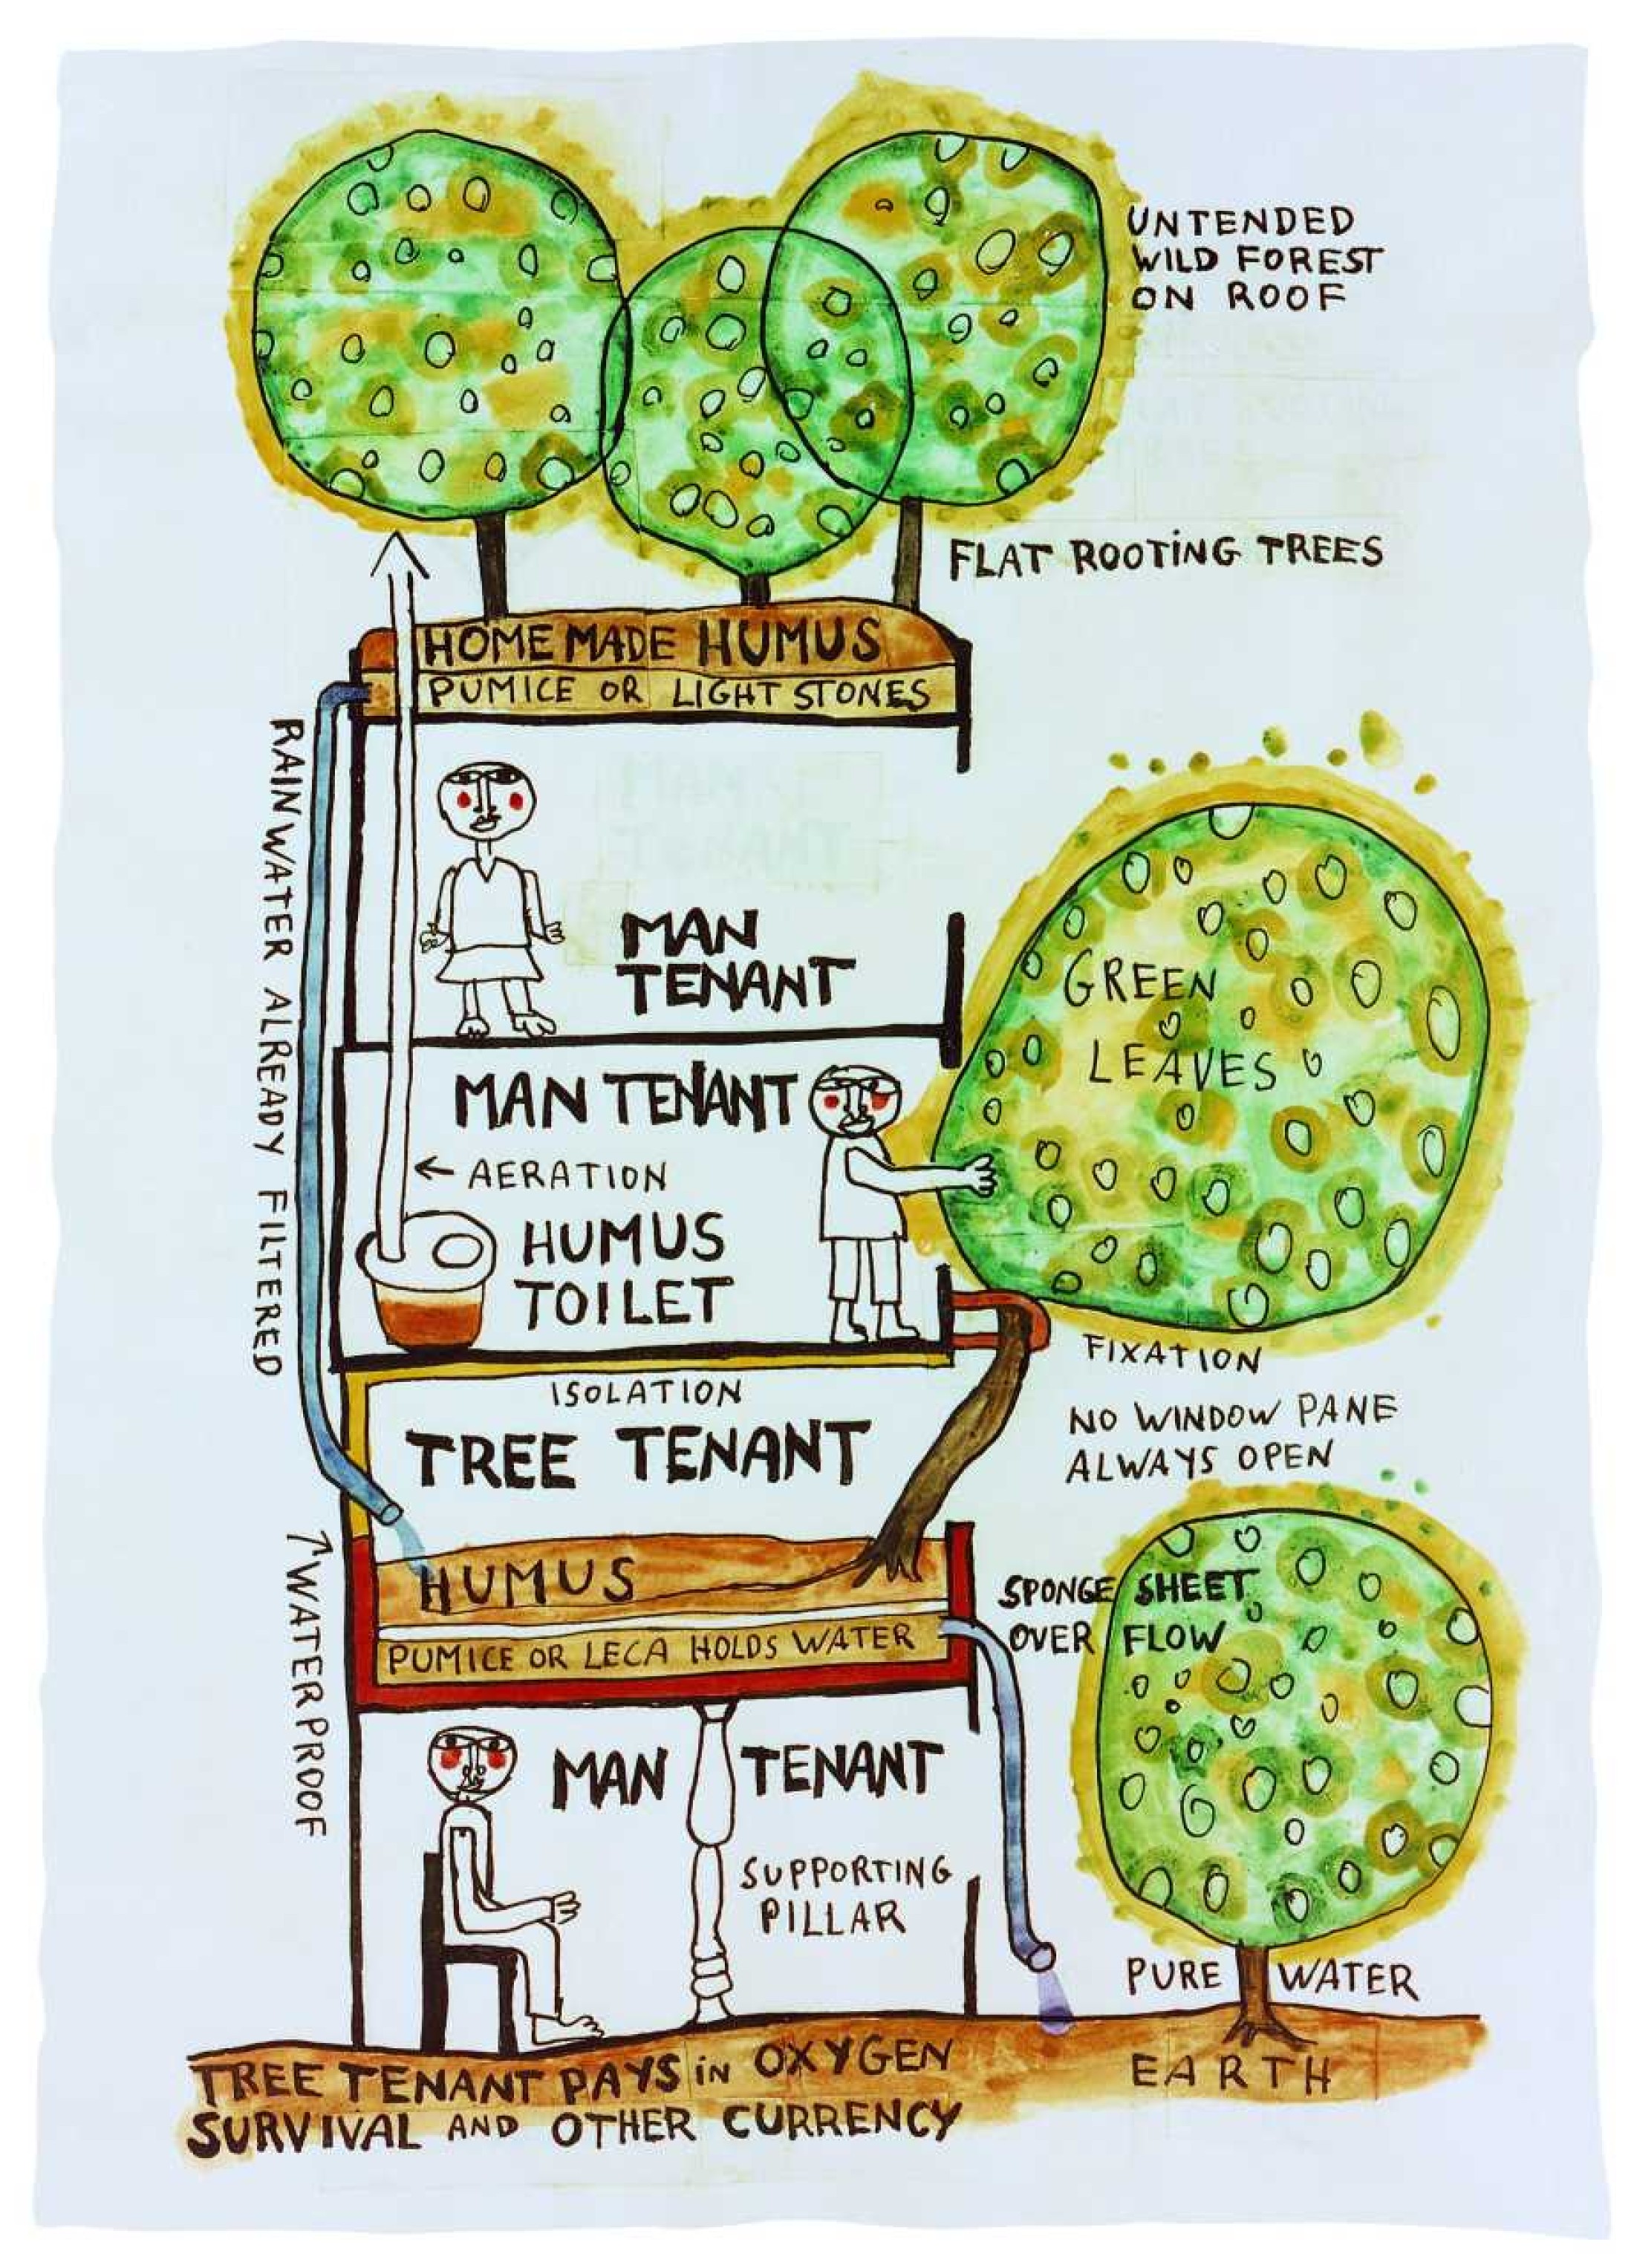 UNTENDED
WILD FOREST
ON ROOF
FLAT ROOTING TREES
HOMEMADE HUMUS
PUMICE OR LIGHT STONES
RAINWATER ALREADY FILTERED
MAN
TENANT
GREEN
LEAVES
MAN TENANT
← AERATION
HUMUS
TOILET
FIXATION
ISOLATION
NO WINDOW PANE
ALWAYS OPEN
TREE TENANT
HUMUS
SPONGE SHEET
OVER FLOW
PUMICE OR LECA HOLDS WATER
↑ WATERPROOF
MAN TENANT
SUPPORTING
PILLAR
PURE WATER
EARTH
TREE TENANT PAYS iN OXYGEN
SURVIVAL AND OTHER CURRENCY